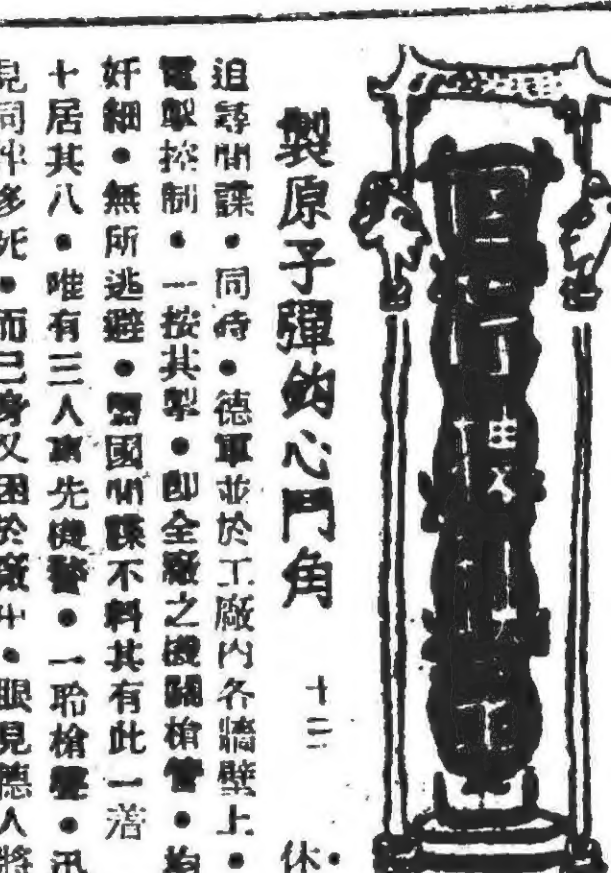 製原子彈鈎心鬥角
十二
休
追尋間諜•同時•德軍並於工廠內各牆壁上•
電掣控制•一按其掣•即全廠之機關槍管•均
奸細•無所逃避•盟國間諜不料其有此一着
十居其八•唯有三人事先機警•一聆槍聲•迅
見同伴多死•而己身又困於廠中•眼見德人將